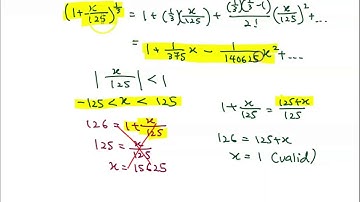 (1+x/125)^(1/3) = 1 + (1/3)(x/125) + (1/3)(1/3-1)/2! (x/125)² + ...
= 1 + 1/375 x - 1/140625 x² + ...
|x/125| < 1
-125 < x < 125
126 = 1 + x/125
125 = x/125
x = 15625
1 + x/125 = (125+x)/125
126 = 125+x
x = 1 (valid)